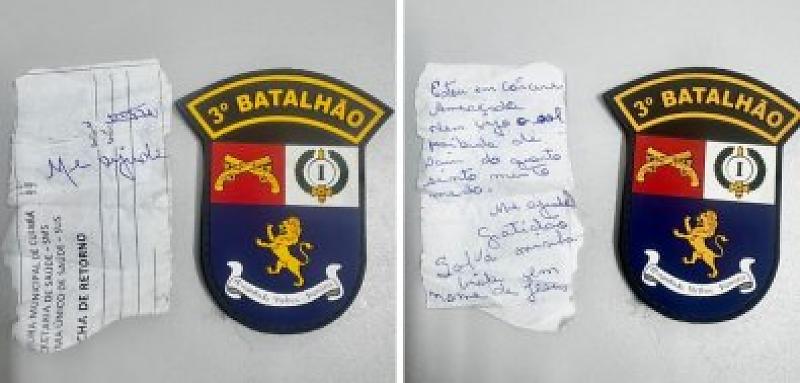 Me ajude
URA MUNICIPAL DE CUIABÁ
CRETARIA DE SAÚDE - SMS
MA ÚNICO DE SAÚDE - SUS
CHA DE RETORNO
3º BATALHÃO
I
Estou em Cárcere
Ameaçada
nem vejo o sol
proibida de
sair do quarto
sinto muito
medo.
Me ajude
Gratidão
Salva minha
vida em
nome de Jesus
3º BATALHÃO
I